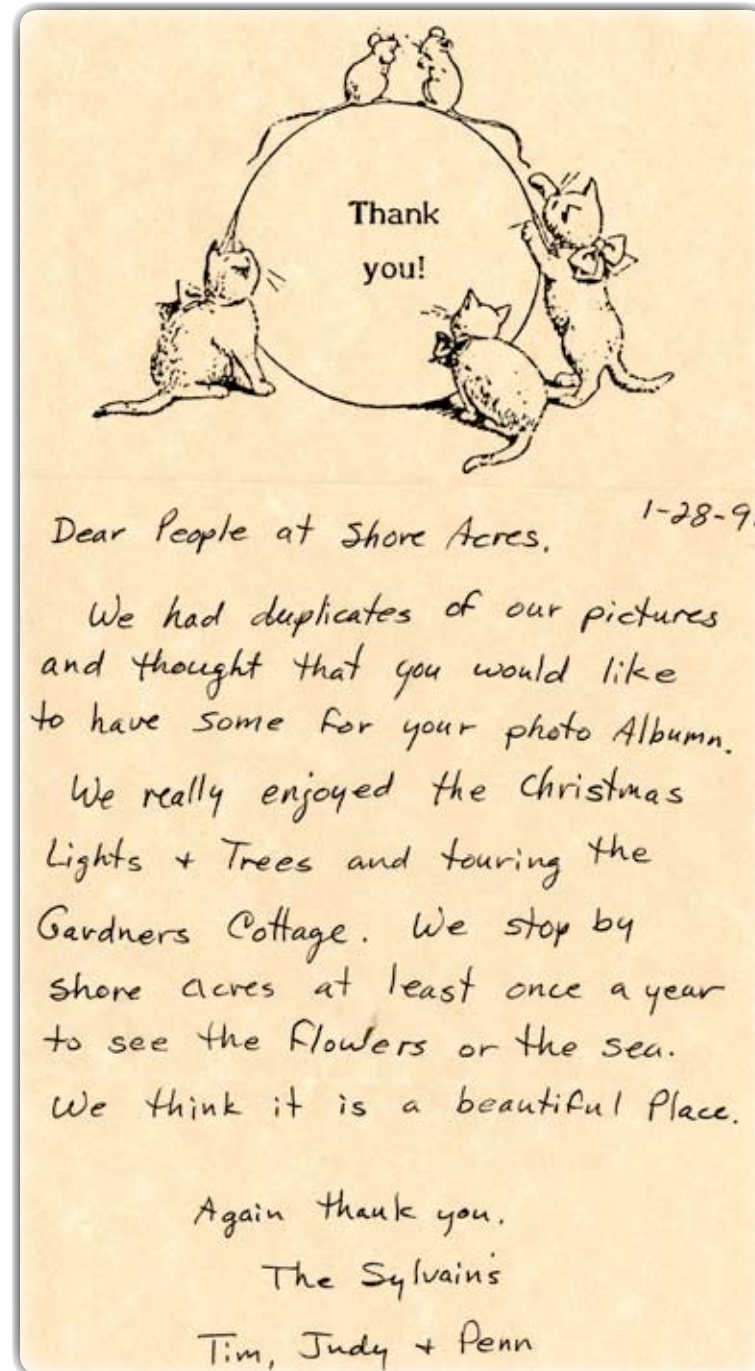 Thank
you!
1-28-9
Dear People at Shore Acres.
We had duplicates of our pictures
and thought that you would like
to have some for your photo Albumn.
We really enjoyed the Christmas
Lights + Trees and touring the
Gardners Cottage. We stop by
shore acres at least once a year
to see the flowers or the sea.
We think it is a beautiful Place.
Again thank you.
The Sylvain's
Tim, Judy + Penn